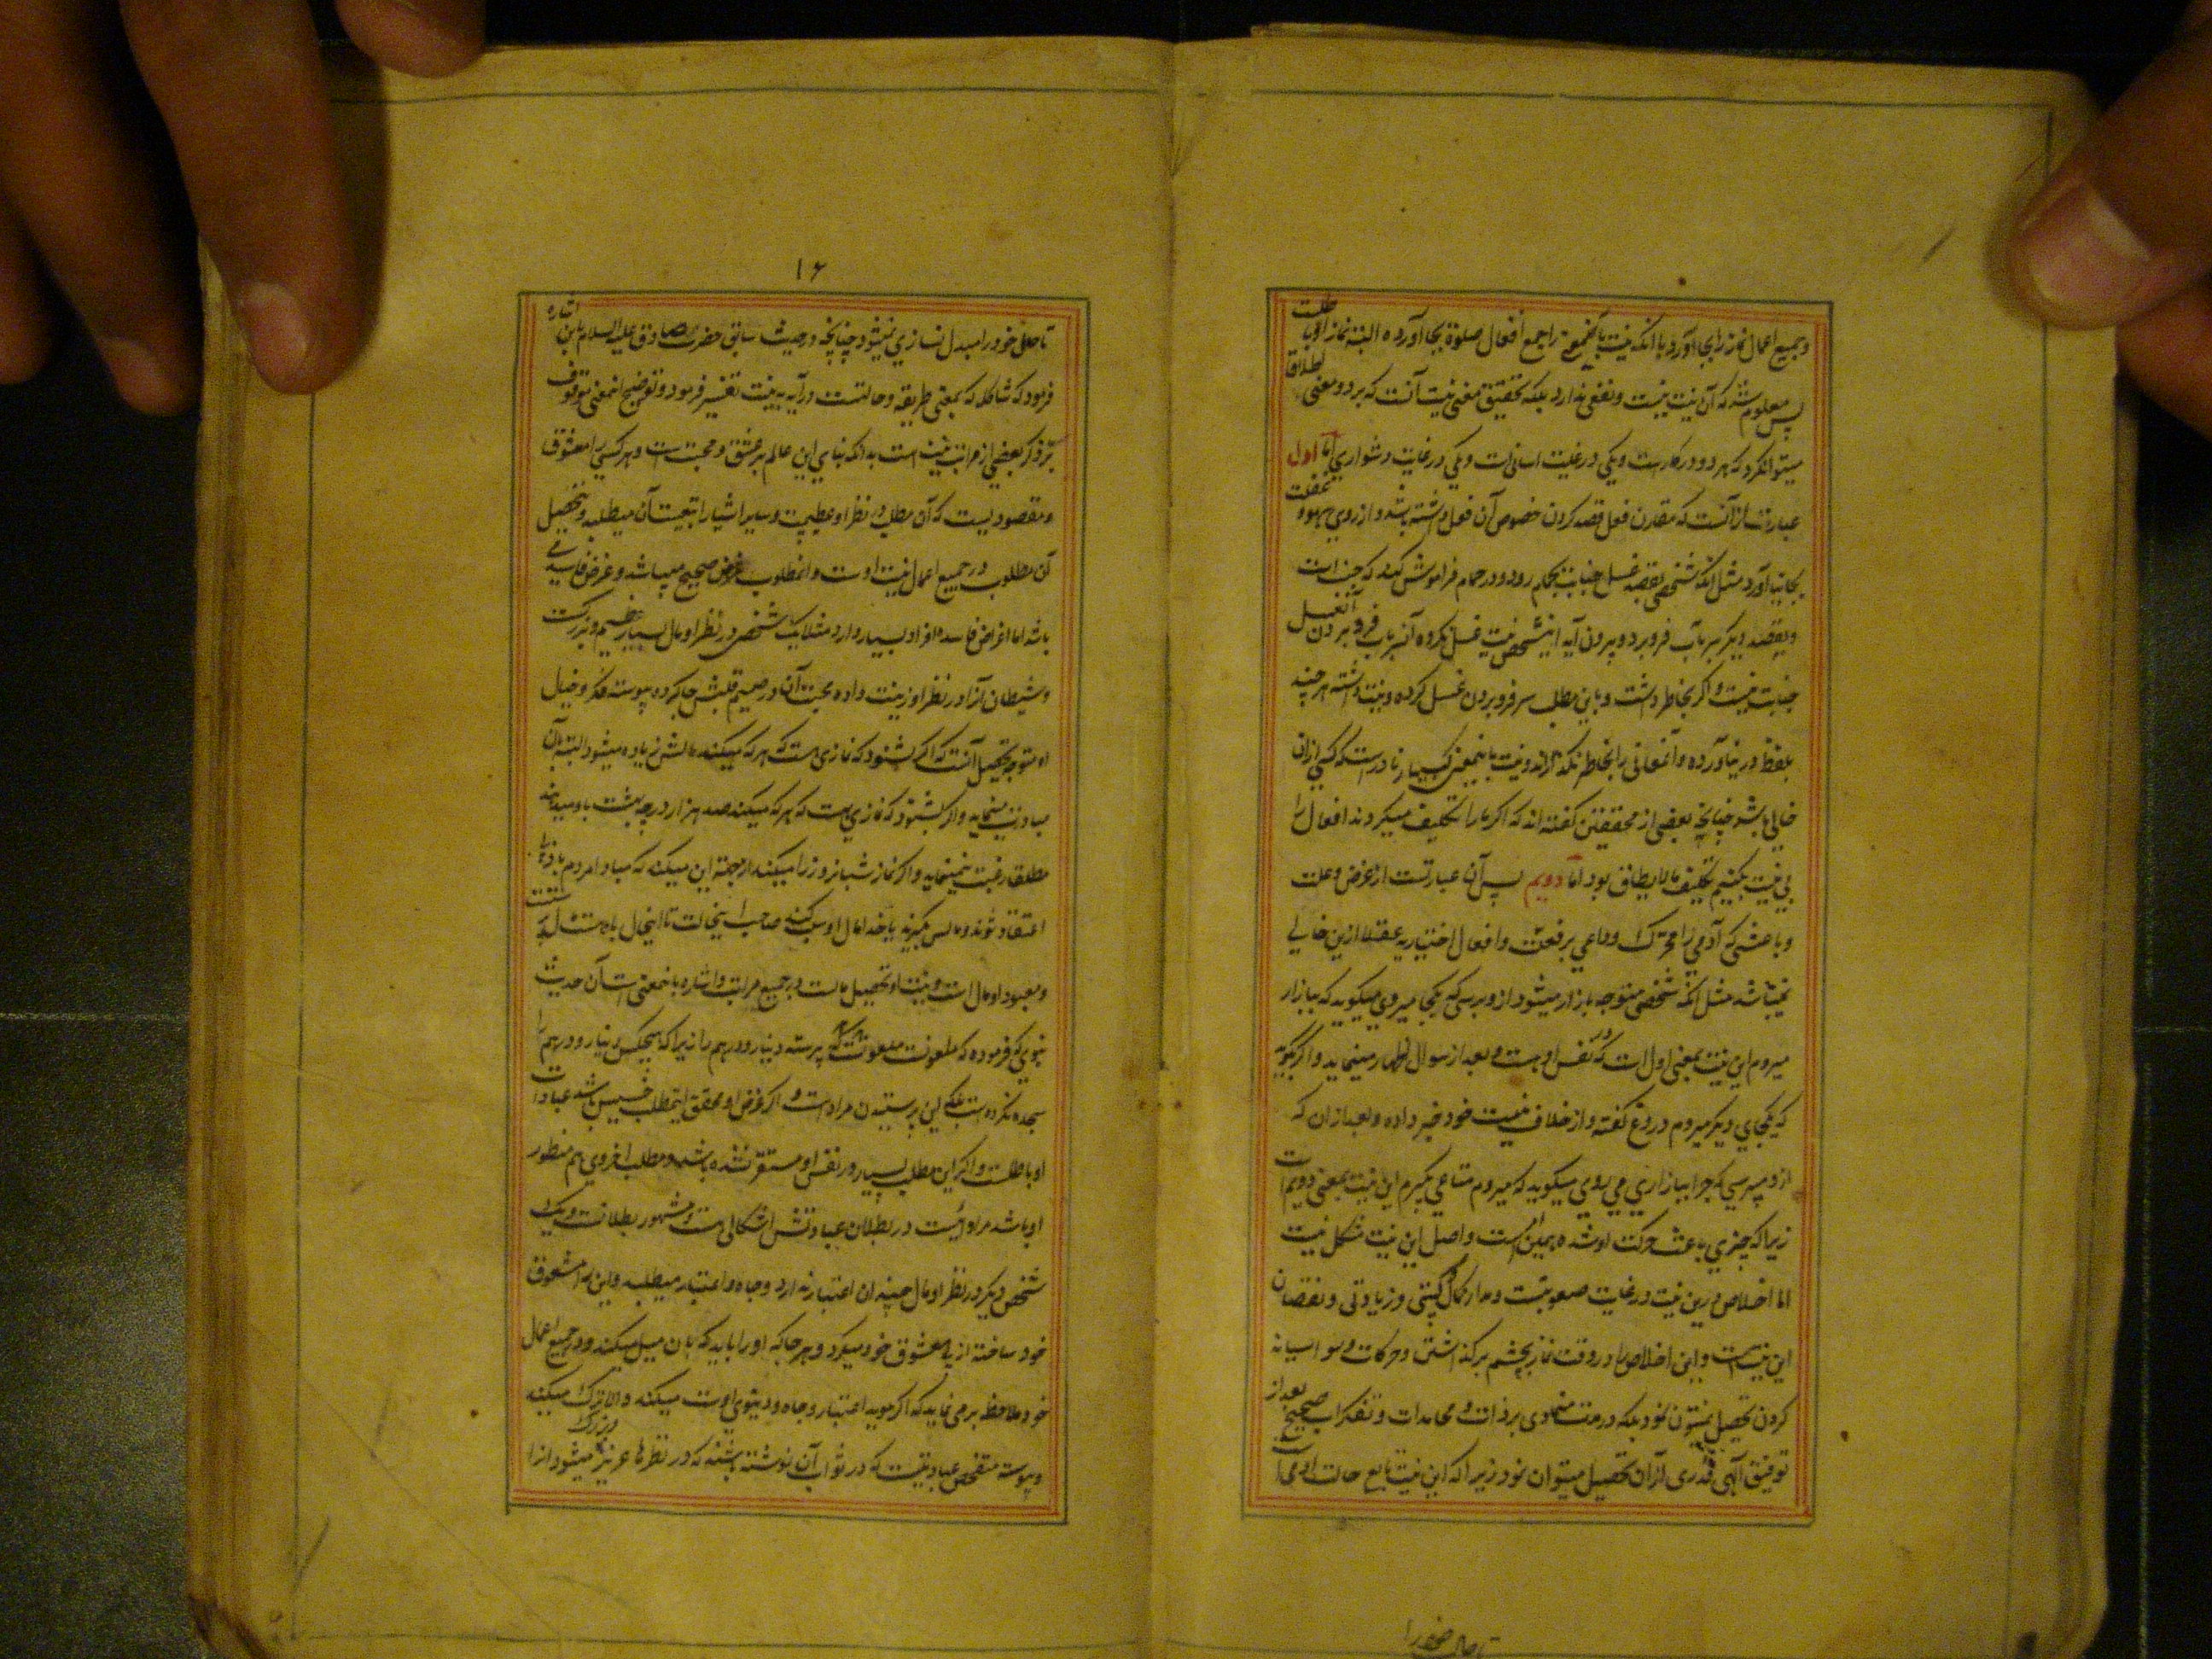 و جمیع اعمال نماز را بجا آورد با آنکه نیت باینمعنی را جمع افعال صلوة بجا آورده البته نماز او باطلست
پس معلوم شد که آن نیت نیست و نفعی ندارد بلکه تحقیق معنی نیت آنست که بر دو معنی اطلاق
میتوانکرد که هر دو در کارست و یکی در غایت اسانیست و یکی در غایت دشواری اما اول
عبارت از آنست که مقارن فعل قصد کردن خصوص آن فعل داشته باشد و از روی سهو و غفلت
بجا نیاورد مثل آنکه شخصی بقصد غسل جنابت بحمام رود و در حمام فراموش کند که جنب است
و بقصد دیگر سر بآب فرو برد و بیرون آید اینشخص نیت غسل نکرده آن سر بآب فرو بردن غسل
جنابت نیست و اگر بخاطر داشت و باین مطلب سر فرو بردن غسل کرده و نیت داشته هر چند
بلفظ در نیاورده و آنمعانی را بخاطر نگذرانده و نیت باینمعنی بسیار نادر است که کسی از ان
خالی باشد چنانچه بعضی از محققین گفته اند که اگر ما را تکلیف میکردند افعال را
بی نیت بکنیم تکلیف ما لا یطاق بود اما دویم پس آن عبارتست از غرض و علت
و باعثی که آدمی را محرک و داعی بر فعلست و افعال اختیاریه عقلا ازین خالی
نمیباشد مثل آنکه شخصی متوجه بازار میشود ازو پرسی که بکجا میروی میگوید که ببازار
میروم این نیت بمعنی اول است که در نفس او هست و بعد از سوال اظهار مینماید و اگر بگوید
که بکجای دیگر میروم دروغ گفته و از خلاف نیت خود خبر داده و بعد از ان که
ازو میپرسی که چرا ببازار می روی میگوید که میروم متاعی بگیرم این نیت بمعنی دویم است
زیرا که چیزی باعث حرکت او شده همین است و اصل این نیت مشکل نیست
اما اخلاص درین نیت در غایت صعوبتست و مدار کمال و زیادتی و نقصان
این نیتست و این اخلاص را در وقت نماز بچشم بر گذاشتن و حرکات وسواسیانه
کردن تحصیل نمیتوان نمود بلکه در مدت متمادی بریاضات و مجاهدات و تفکرات صحیح بعد از
توفیق الهی قدری از آن تحصیل میتوان نمود زیرا که این نیت تابع حالت آدمی است
تا حال خود را
۱۶
تا حال خود را مبدل نسازی نمیشود چنانچه در حدیث سابق حضرت صادق علیه السلام باین اشاره
فرمود که شاکله که بمعنی طریقه و حالتست در آیه به نیت تفسیر فرمود و توضیح اینمعنی موقوف
بر ذکر بعضی از مراتب نیت است بدانکه بنای این عالم بر عشق و محبت است و هر کس را معشوق
و مقصودیست که آن مطلب در نظر او عظیمست و سایر اشیا را بتبعیت آن میطلبد و تحصیل
آن مطلوب در جمیع اعمال نیت اوست و آنمطلوب غرض صحیح میباشد و غرض فاسد می
باشد اما اغراض فاسده افراد بسیار دارد مثلا یک شخص در نظر او مال بسیار عظیم و بزرگست
و شیطان آنرا در نظر او زینت داده محبت آن در صمیم قلبش جا کرده پیوسته فکر و خیال
او متوجه تحصیل آنست که اگر بشنود که نمازی هست که هر که میکند مالش زیاده میشود البته بآن
مبادرت مینماید و اگر بشنود که نمازی هست که هر که میکند صد هزار درجه بهشت باو میدهند
مطلقا رغبت نمینماید و اگر نماز شبانروز را میکند از جهة این میکند که مبادا مردم باو بد
اعتقاد شوند و مالش نگیرند یا خدا مال او سلب کند صاحب اینحالت تا اینحال باوست
و معبود او مال است و نیت او تحصیل مالست در جمیع مراتب و اشاره باینمعنی است آن حدیث
نبوی که فرموده که ملعونست ملعونست هر که پرستد دینار و درهم را زیرا که هیچکس دینار و درهم را
سجده نکرده است بلکه این پرستیدن مراد است و اگر غرض او محقق اینمطلب خسیس باشد عبادات
او باطلست و اگر این مطلب بسیار در نفس او مستقر نشده باشد و مطلب اخروی هم منظور
او باشد در بطلان عبادتش اشکالی هست و مشهور بطلانست و یک
شخص دیگر در نظر او مال چندان اعتبار ندارد و جاه و اعتبار میطلبد و این را معشوق
خود ساخته از پی معشوق خود میگردد و هر جا که او را یابد که بان میل میکند و در جمیع اعمال
خود ملاحظه بر می نماید که اگر موید اعتبار و جاه دنیوی اوست میکند و الا ترک میکند
و پیوسته متفحص عبادتیست که در ثواب آن نوشته باشند که در نظرها عزیز و بزرگ میشود از